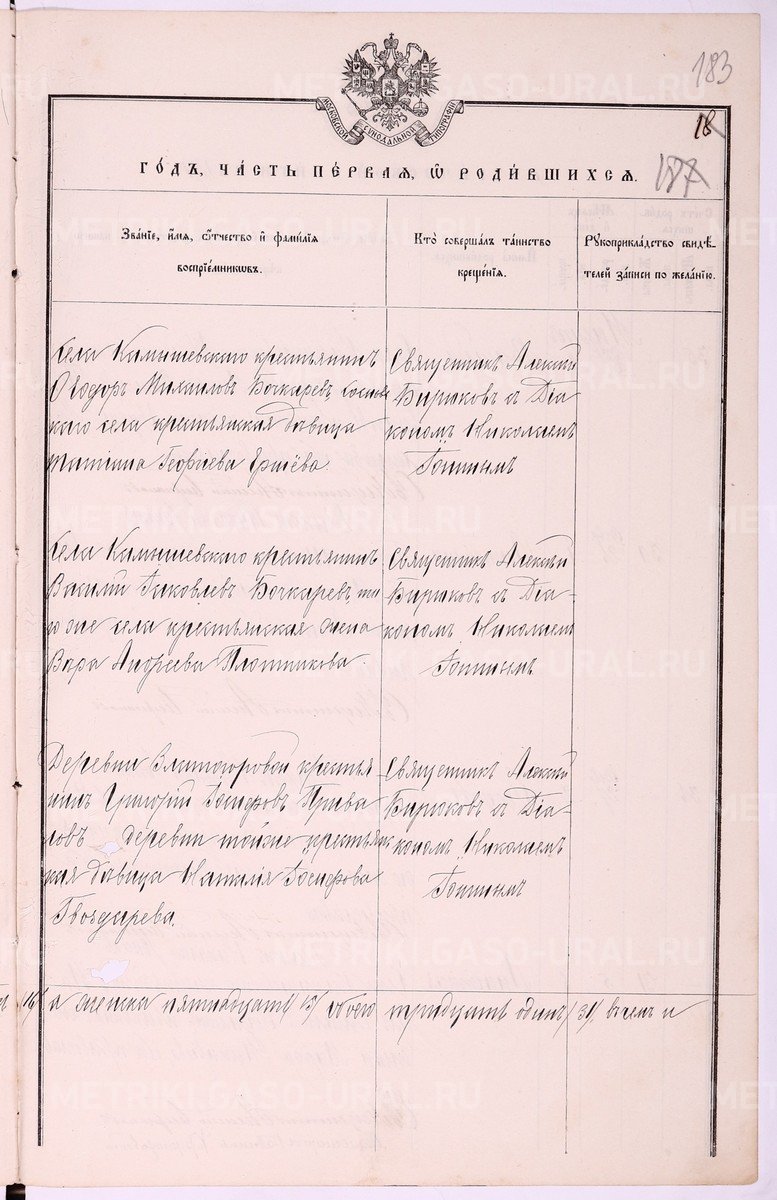 183
МОСКОВСКОЙ СѴНОДАЛЬНОЙ ТИПОГРАФІИ
18
ГО́ДЪ, ЧА́СТЬ ПЕ́РВАЯ, Ѡ҆ РОДИ́ВШИХСЯ.
187
Зва́нїе, и҆́мя, ѻ҆́тчество и҆ фами́лїя
воспрїе́мникѡвъ.
Кто̀ соверша́лъ та́инство
креще́нїя.
Рꙋкоприкла́дство свидѣ́-
телей за́писи по жела́нїю.
Села Камышевскаго крестьянинъ
Ѳеодоръ Михаиловъ Бочкаревъ,
каго села крестьянская дѣвица
Татіана Георгіева Ершёва
Священникъ Алексѣй
Бирюковъ съ Діа
кономъ Николаемъ
Села Камышевскаго крестьянинъ
Василій Іаковлевъ Бочкаревъ, то
го же села крестьянская жена
Вѣра Андреева Плотникова.
Священникъ Алексѣй
Бирюковъ съ Діа-
кономъ Николаемъ
Деревни Златогоровой крестья
нинъ Григорій Іосифовъ Прива
ловъ деревни тойже крестьянс
кая дѣвица Наталія Іосифова
Гвоздарева.
Священникъ Алексѣй
Бирюковъ съ Діа-
кономъ Николаемъ
16/ а женска пятнадцать /15/ обоего тридцать одинъ /31/ въ чемъ и
METRIKI.GASO-URAL.RU